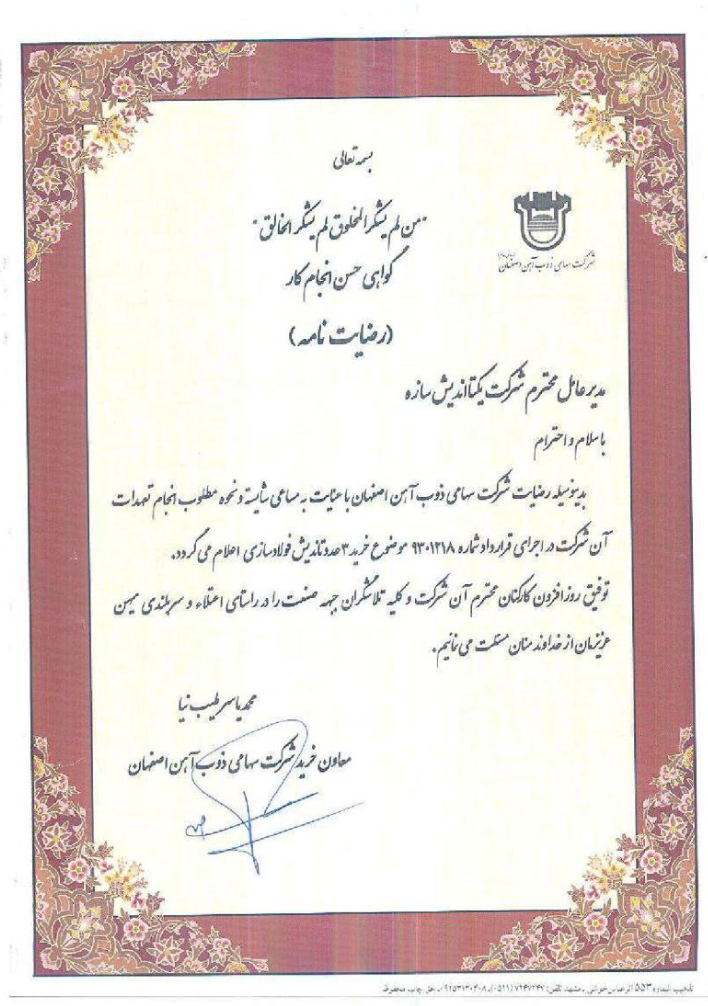 بسمه تعالی
"من لم یشکر المخلوق لم یشکر الخالق"
شرکت سهامی ذوب آهن اصفهان
گواهی حسن انجام کار
(رضایت نامه)
مدیر عامل محترم شرکت یکتا اندیش سازه
با سلام و احترام
بدینوسیله رضایت شرکت سهامی ذوب آهن اصفهان با عنایت به مساعی شایسته و نحوه مطلوب انجام تعهدات
آن شرکت در اجرای قرارداد شماره ۹۳۰۱۲۱۸ موضوع خرید ۳ عدد تاندیش فولادسازی اعلام می گردد.
توفیق روز افزون کارکنان محترم آن شرکت و کلیه تلاشگران جبهه صنعت را در راستای اعتلاء و سربلندی میهن
عزیزمان از خداوند منان مسئلت می نمائیم.
محمد یاسر طیب نیا
معاون خرید شرکت سهامی ذوب آهن اصفهان
تذهیب شماره ۵۵۳ اثر عباس خوشی - مشهد تلفن: ۷۲۴۷۲۴۷ (۰۵۱۱) - ۰۹۱۵۳۱۳۰۴۰۸ حق چاپ محفوظ